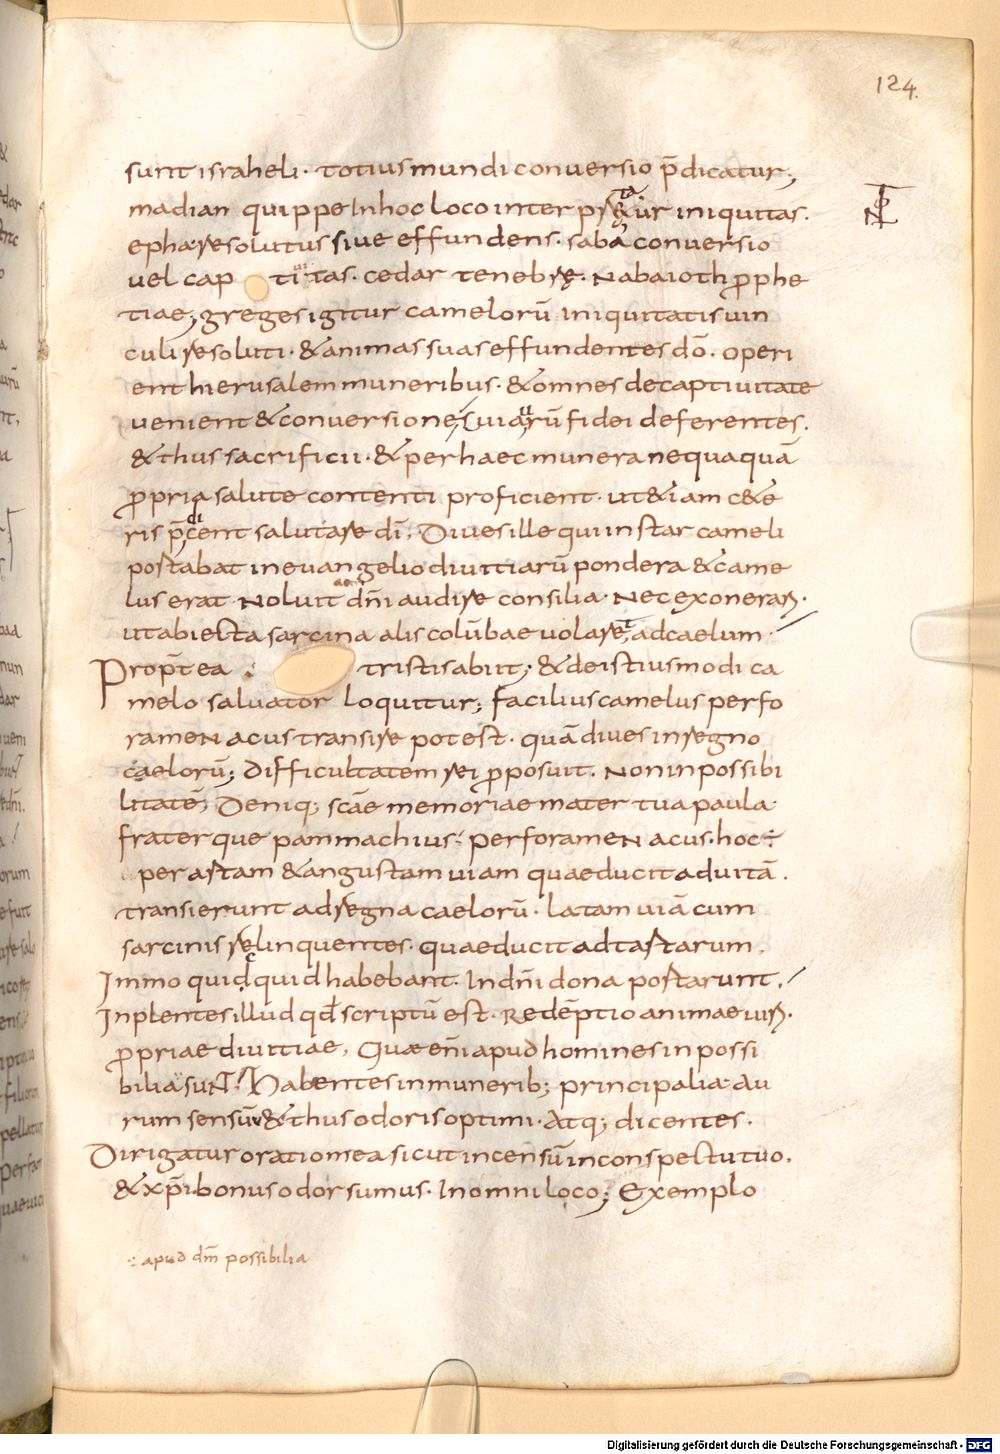 124.
sunt israheli· totius mundi conversio p̄dicatur;
madian quippe In hoc loco inter p̄ iniquitas.
epha resolutus sive effundens. saba conversio
vel cap ti tas. cedar tenebrę. Nabaioth p̄phe
tiae; greges igitur camelorū iniquitatis vin
culis resoluti· & animas suas effundentes dō. operi
ent hierusalem muneribus· & omnes de captivitate
venient & conversione, fidei deferentes.
& thus sacrificii· & per haec munera nequaquā
p̄pria salute contenti proficient· ut & iam c&e
ris p̄dicent salutare dī, Dives ille qui instar cameli
portabat in evangelio divitiarū pondera & came
lus erat Noluit dn̄i audire consilia· Nec exonerari.
ut abiecta sarcina alis colūbae volaret, ad caelum·
Propt̄ea tristis abiit; & de istiusmodi ca
melo salvator loquitur; facilius camelus per fo
ramen acus transire potest· quā dives in regno
caelorū; difficultatem rei p̄posuit. Non inpossibi
litatē; Deniq; scāe memoriae mater tua paula·
frater que pammachius· per foramen acus· hoc ÷
per artam & angustam viam quae ducit ad vitā.
transierunt ad regna caelorū· latam viā cum
sarcinis relinquentes· quae ducit ad tartarum.
Immo quicquid habebant· In dn̄i dona portarunt,
Inplentes illud qd̄ scriptū est· Redēptio animae viri·
p̄priae divitiae, Quae enī apud homines in possi
bilia sunt: Habentes in munerib; principalia· Au
rum sensūū & thus odoris optimi· Atq; dicentes.
Dirigatur oratio mea sicut incensū in conspectu tuo.
& xp̄i bonus odor sumus· In omni loco; Exemplo
∴ apud dm̄ possibilia
Digitalisierung gefördert durch die Deutsche Forschungsgemeinschaft - DFG